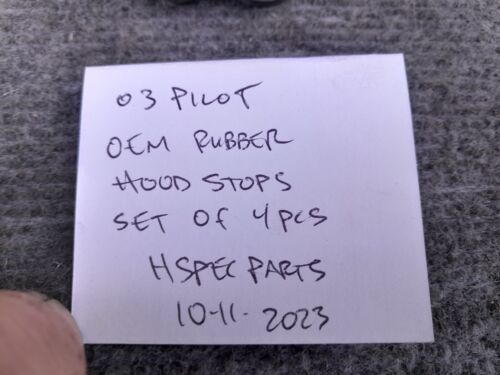 03 PILOT
OEM RUBBER
HOOD STOPS
SET OF 4 PCS
HSPEC PARTS
10-11-2023